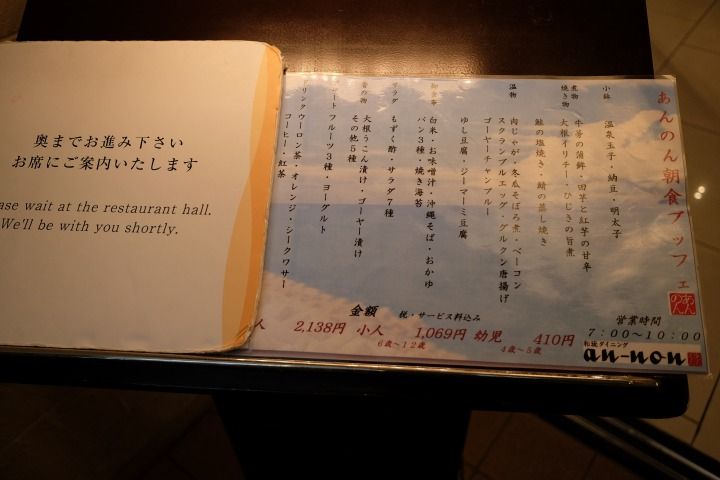 奥までお進み下さい
お席にご案内いたします
ase wait at the restaurant hall.
We'll be with you shortly.
あんのん朝食ブッフェ
あんのん
小鉢 温泉玉子・納豆・明太子
煮物 牛蒡の蒲鉾・田芋と紅芋の甘辛
焼き物 大根イリチー・ひじきの旨煮
鮭の塩焼き・鯖の蒸し焼き
温物 肉じゃが・冬瓜そぼろ煮・ベーコン
スクランブルエッグ・グルクン唐揚げ
ゴーヤーチャンプルー
ゆし豆腐・ジーマーミ豆腐
御食事 白米・お味噌汁・沖縄そば・おかゆ
パン3種・焼き海苔
香の物 大根うこん漬け・ゴーヤー漬け
その他5種
サラダ もずく酢・サラダ7種
ート フルーツ3種・ヨーグルト
リンク ウーロン茶・オレンジ・シークワサー
コーヒー・紅茶
金額 税・サービス料込み
人 2,138円 小人 1,069円 幼児 410円
6歳～12歳 4歳～5歳
営業時間
7:00～10:00
和琉ダイニング
an-non